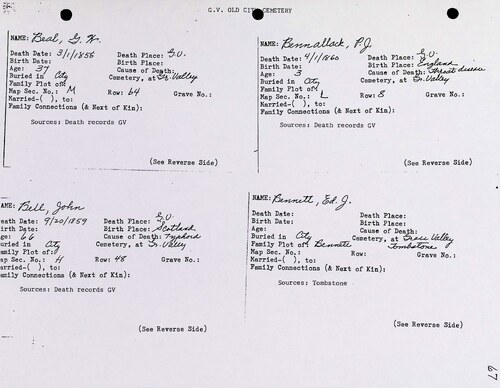 G.V. OLD CITY CEMETERY
NAME: Beal, G. W.
Death Date: 3/1/1858 Death Place: G.V.
Birth Date: Birth Place:
Age: 37 Cause of Death:
Buried in City Cemetery, at Gr. Valley
Family Plot of:
Map Sec. No.: M Row: 64 Grave No.:
Married-( ), to:
Family Connections (& Next of Kin):
Sources: Death records GV
(See Reverse Side)
NAME: Bennallack, P.J.
Death Date: 4/1/1860 Death Place: G.V.
Birth Date: Birth Place: England
Age: 3 Cause of Death: Throat disease
Buried in City Cemetery, at Gr. Valley
Family Plot of:
Map Sec. No.: L Row: 8 Grave No.:
Married-( ), to:
Family Connections (& Next of Kin):
Sources: Death records GV
(See Reverse Side)
AME: Bell, John
eath Date: 9/20/1859 Death Place: G.V.
irth Date: Birth Place: Scotland
ge: 66 Cause of Death:
uried in City Cemetery, at Gr. Valley
amily Plot of:
ap Sec. No.: H Row: 48 Grave No.:
arried-( ), to:
amily Connections (& Next of Kin):
Sources: Death records GV
(See Reverse Side)
NAME: Bennett, Ed. J.
Death Date: Death Place:
Birth Date: Birth Place:
Age: Cause of Death:
Buried in City Cemetery, at Grass Valley
Family Plot of: Bennett Tombstone
Map Sec. No.: Row: Grave No.:
Married-( ), to:
Family Connections (& Next of Kin):
Sources: Tombstone
(See Reverse Side)
67